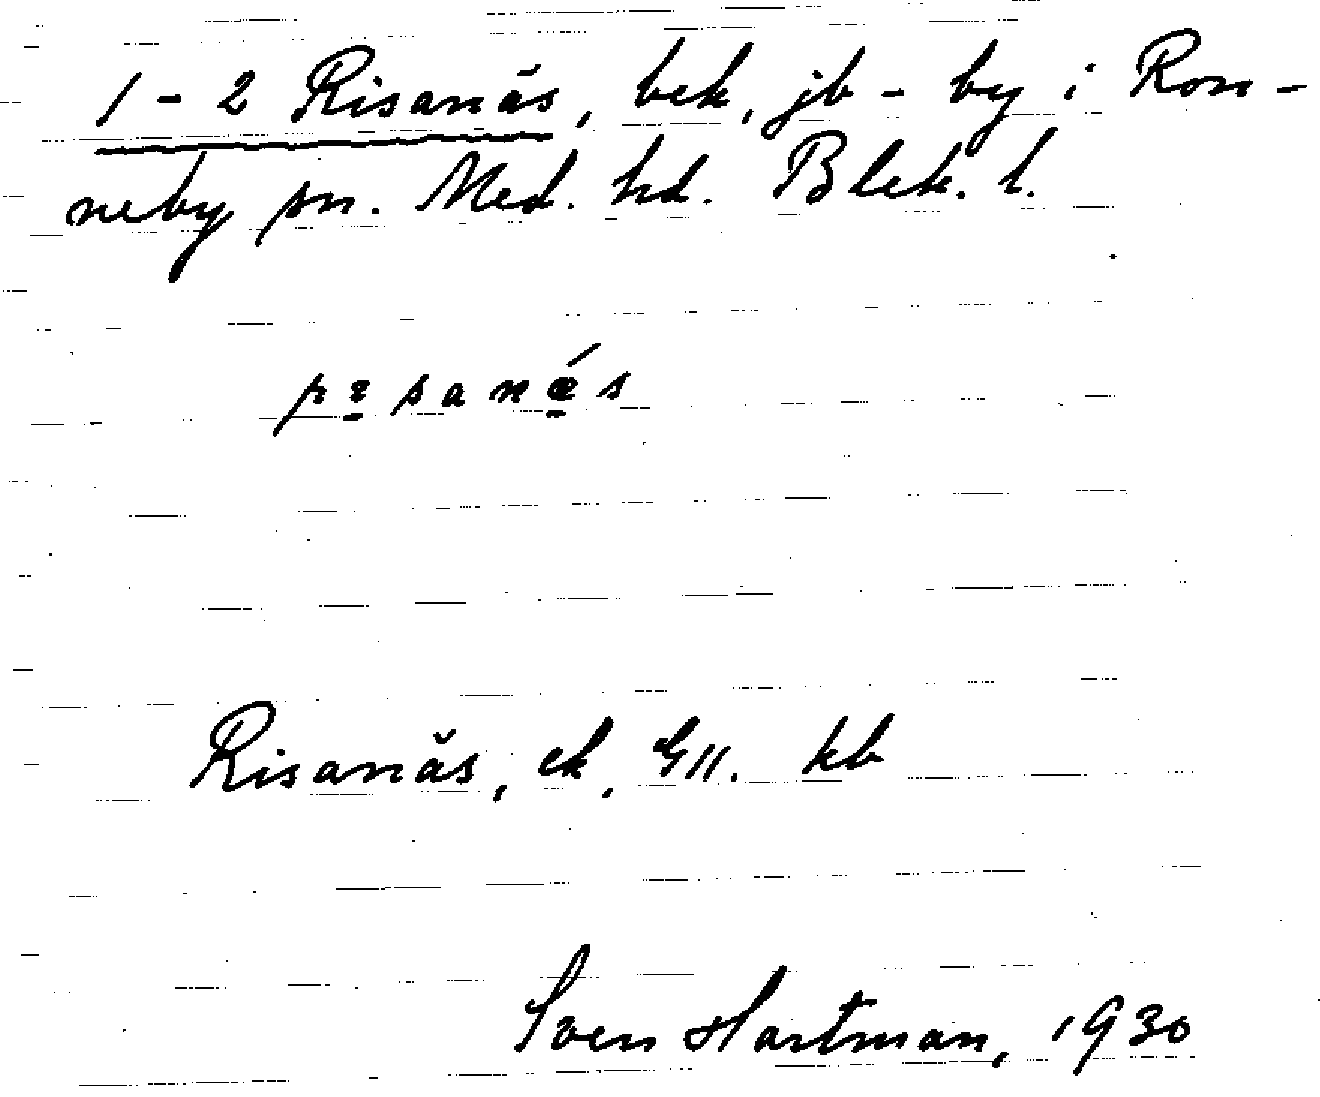 1-2 Risanäs, bek, jb - by i Ron-
neby sn. Med. hd. Blek. l.
Risanäs, ek, G11. kb
Sven Hartman, 1930